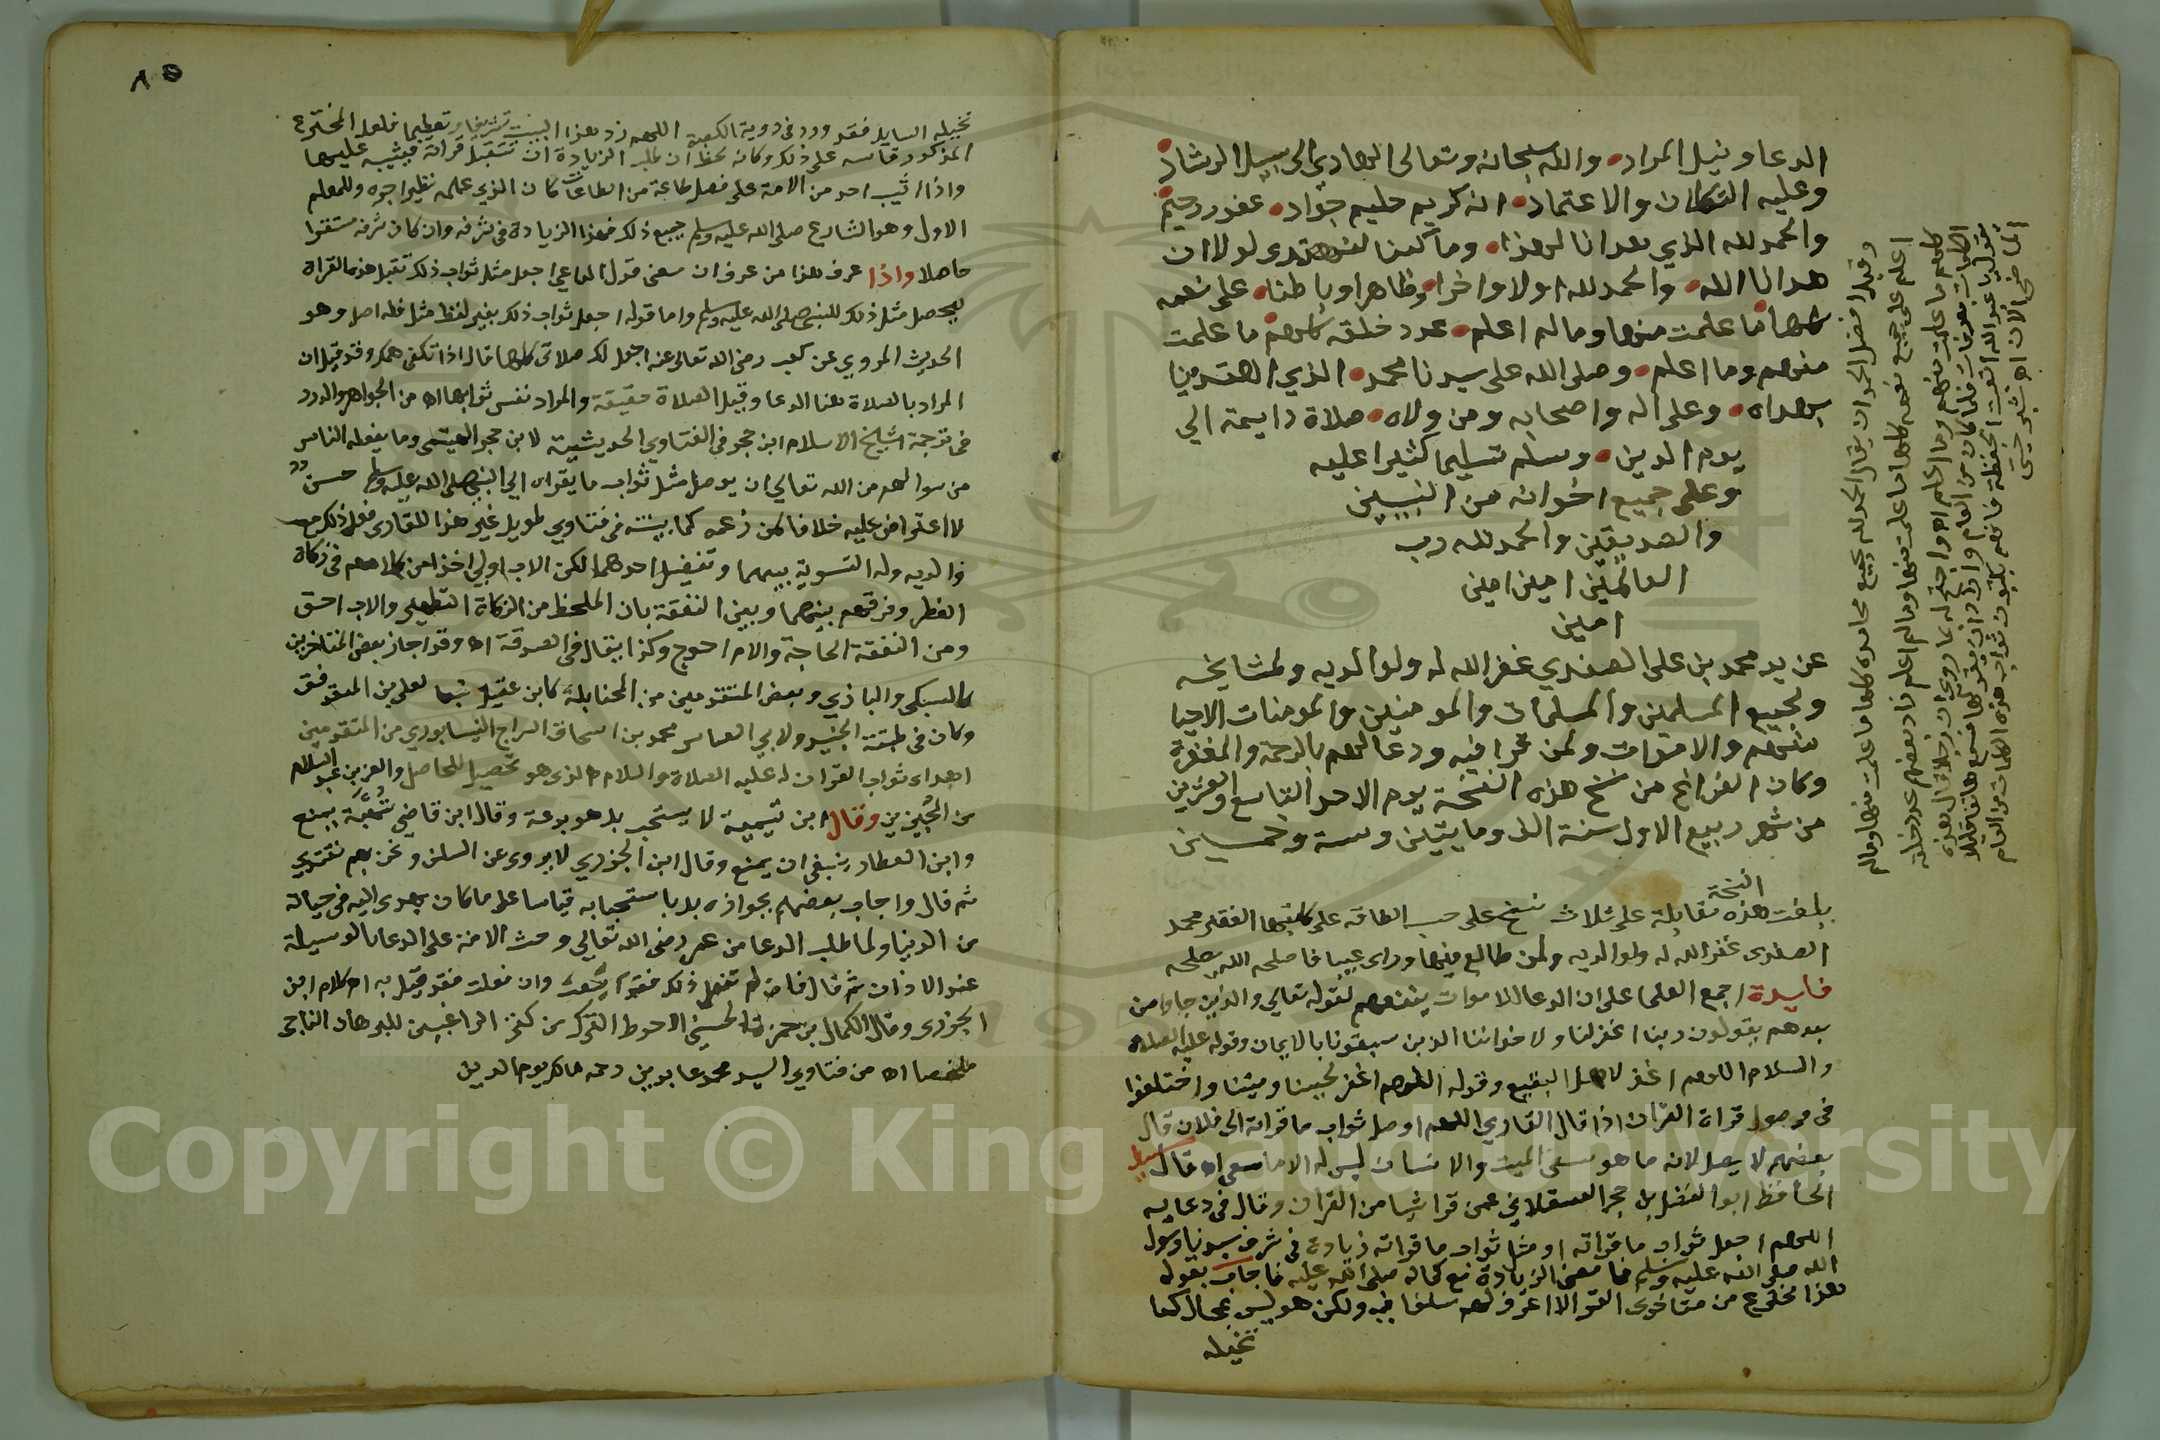 الدعا ونيل المراد والله سبحانه وتعالى الهادي الى سبيل الرشاد
وعليه التكلان والاعتماد انه كريم حليم جواد غفور رحيم
والحمد لله الذي هدانا لهذا وما كنا لنهتدي لولا ان
هدانا الله والحمد لله اولا واخرا وظاهرا وباطنا على نعمه
كلها ما علمت منها وما لم اعلم عدد خلقه كلهم ما علمت
منهم وما اعلم وصلى الله على سيدنا محمد الذي اهتدينا
بهداه وعلى اله واصحابه ومن ولاه صلاة دايمة الي
يوم الدين وسلم تسليما كثيرا عليه
وعلى جميع اخوانه من النبيين
والصديقين والحمد لله رب
العالمين امين امين
امين
عن يد محمد بن على الصندي غفر الله له ولوالديه ولمشايخه
ولجميع المسلمين والمسلمات والمومنين والمومنات الاحيا
منهم والاموات ولمن قرا فيه ودعا لهم بالرحمة والمغفرة
وكان الفراغ من نسخ هذه النسخة يوم الاحد التاسع والعشرين
من شهر ربيع الاول سنة الف ومايتين وستة وخمسين
بلغت هذه النسخة مقابلة على ثلاث نسخ على حسب الطاقة على كاتبها الفقير محمد
الصندى غفر الله له ولوالديه ولمن طالع فيها وراى عيبا فاصلحه الله يصلحه
فايدة اجمع العلما على ان الدعا للاموات ينفعهم لقوله تعالي والذين جاوا من
بعدهم يقولون ربنا اغفر لنا ولاخواننا الذين سبقونا بالايمان وقوله عليه الصلاة
والسلام اللهم اغفر لاهل البقيع وقوله اللهم اغفر لحينا وميتنا واختلفوا
في وصول قراة القران اذا قال القاري اللهم اوصل ثواب ما قراته الى فلان قال
بعضهم لا يصل لانه ما هو سعى الميت والانسان ليس له الا ما سعى اه قال سيل
الحافظ ابو الفضل بن حجر العسقلاني عمن قرا شيا من القران وقال في دعايه
اللهم اجعل ثواب ما قراته او مثل ثواب ما قراته زيادة في شرف سيدنا رسول
الله صلى الله عليه وسلم فما معنى الزيادة مع كماله صلى الله عليه فاجاب بقوله
هذا مخترع من متاخرى القرا لا اعرف لهم سلفا فيه ولكن هو ليس بمحال كما
تخيله
وقيل افضل الحمد ان يقال الحمد لله بجميع محامده كلها ما علمت منها وما لم
اعلم على جميع نعمه كلها ما علمت منها وما لم اعلم زاد بعضهم عدد خلقه
كلهم ما علمت منهم وما لم اعلم اه واحتج له بما روي ان رجلا قال بهذه
الكلمات بعرفات فلما كان من العام
يقول يا عبد الله اتعبت الحفظة فانهم يكتبون ثواب هذه الكلمات من العام
الماضى الى الان اه
٨٥
تخيله السايل فقد ورد في روية الكعبة اللهم زد هذا البيت تشريفا وتعظيما فلعل المخترع
المذكور قاسه على ذلك وكانه لحظ ان طلب الزيادة ان تتقبل قراته فيثيبه عليها
واذا اثيب احد من الامة على فعل طاعة من الطاعات كان الذي علمه نظير اجره وللمعلم
الاول وهو الشارع صلى الله عليه وسلم جميع ذلك فهذا الزيادة في شرفه وان كان شرفه مستقرا
حاصلا واذا عرف هذا من عرف ان معنى قول الداعي اجعل مثل ثواب ذلك تقبل هذه القراة
ليحصل مثل ذلك للنبي صلى الله عليه وسلم واما قوله اجعل ثواب ذلك بغير لفظ مثل فله اصل وهو
الحديث المروي عن كعب رضى الله تعالى عنه اجعل لك صلاتي كلها قال اذا تكفى همك وقد قيل ان
المراد بالصلاة هنا الدعا وقيل الصلاة حقيقة والمراد نفس ثوابها اه من الجواهر والدرر
في ترجمة شيخ الاسلام ابن حجر في الفتاوي الحديثية لابن حجر الهيتمى وما يفعله الناس
من سوالهم من الله تعالي ان يوصل مثل ثواب ما يقراه الي النبي صلى الله عليه وسلم حسن
لا اعتراض عليه خلافا لمن زعمه كما بينته في فتاوي طويل غير هذا للقارى فعل ذلك مع
والديه وله التسوية بينهما وتفضيل احدهما لكن الاب اولي اخذا من كلامهم في زكاة
الفطر وفرقهم بينهما وبين النفقة بان الملحظ من الزكاة التطهير والاب احق
ومن النفقة الحاجة والام احوج وكذا يقال في الصدقة اه وقد اجاز بعض المتاخرين
كالسبكى والبارزي وبعض المتقدمين من الحنابلة كابن عقيل تبعا لعلى بن الموفق
وكان في طبقة الجنيد ولابي العباس محمد بن اسحاق السراج النيسابوري من المتقدمين
اهداء ثواب القران له عليه الصلاة والسلام الذي هو تحصيل للحاصل والعز بن عبد السلام
من المجيزين وقال ابن تيمية لا يستحب بل هو بدعة وقال ابن قاضي شهبة يمنع
وابن العطار ينبغى ان يمنع وقال ابن الجزري لا يروى عن السلف ونحن بهم نقتدي
ثم قال واجاب بعضهم بجوازه بل باستحبابه قياسا على ما كان يهدى اليه في حياته
من الدنيا ولما طلب الدعا من عمر رضى الله تعالي وحث الامة على الدعا بالوسيلة
عند الاذان ثم قال فان لم تفعل ذلك فقد اتبعت وان فعلت فقد قيل به اه كلام ابن
الجزرى وقال الكمال بن حمزة الحسيني الاحوط الترك من كنز الراغبين للبرهان الناجى
ملخصا اه من فتاوي السيد محمد عابدين رحمه مالك يوم الدين
Copyright © King Saud University